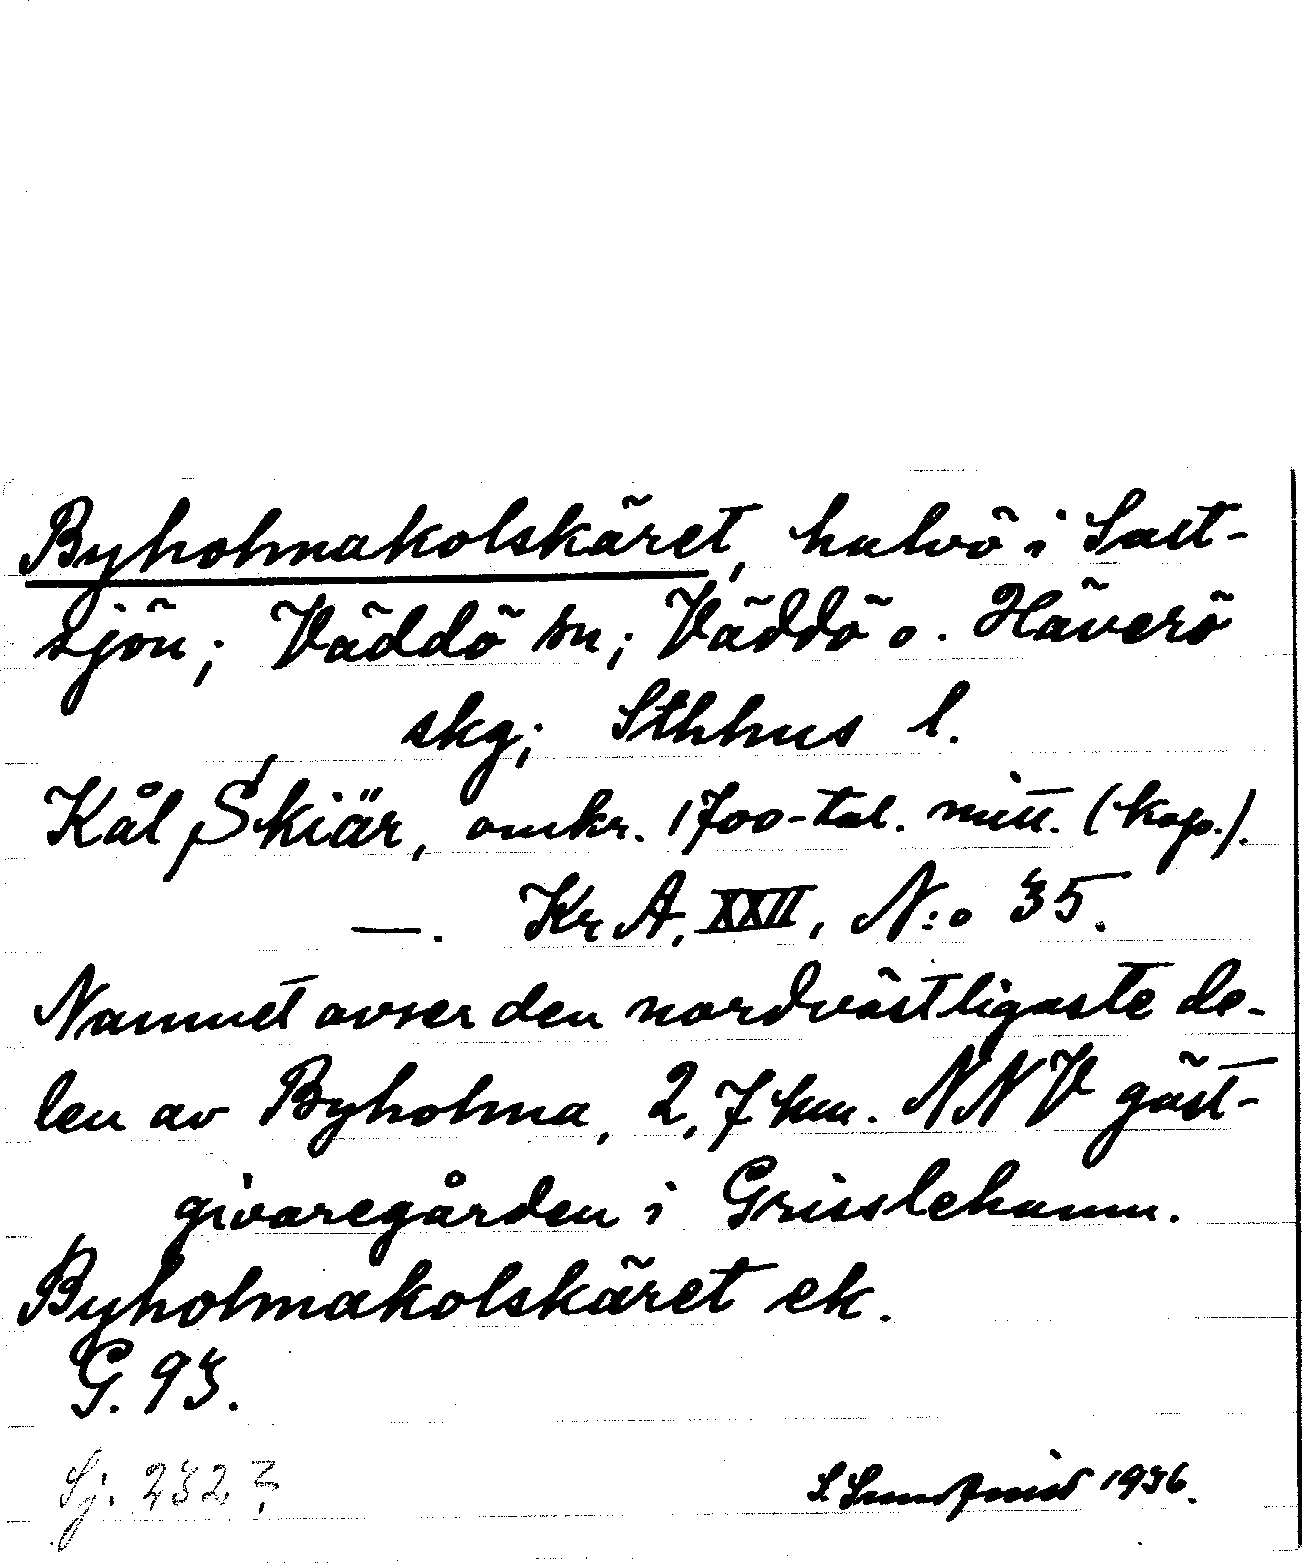 Byholmakolskäret, halvö i Salt-
sjön; Väddö sn; Väddö o. Häverö
skg; Sthhus l.
Kål Skiär, omkr. 1700-tal. mitt. (kop.).
—. Kr A, XXII, N:o 35.
Namnet avser den nordvästligaste de-
len av Byholma, 2,7 km. NNV gäst-
givaregården i Grisslehamn.
Byholmakolskäret ek.
G. 93.
Sj. 232?
S. 1936.